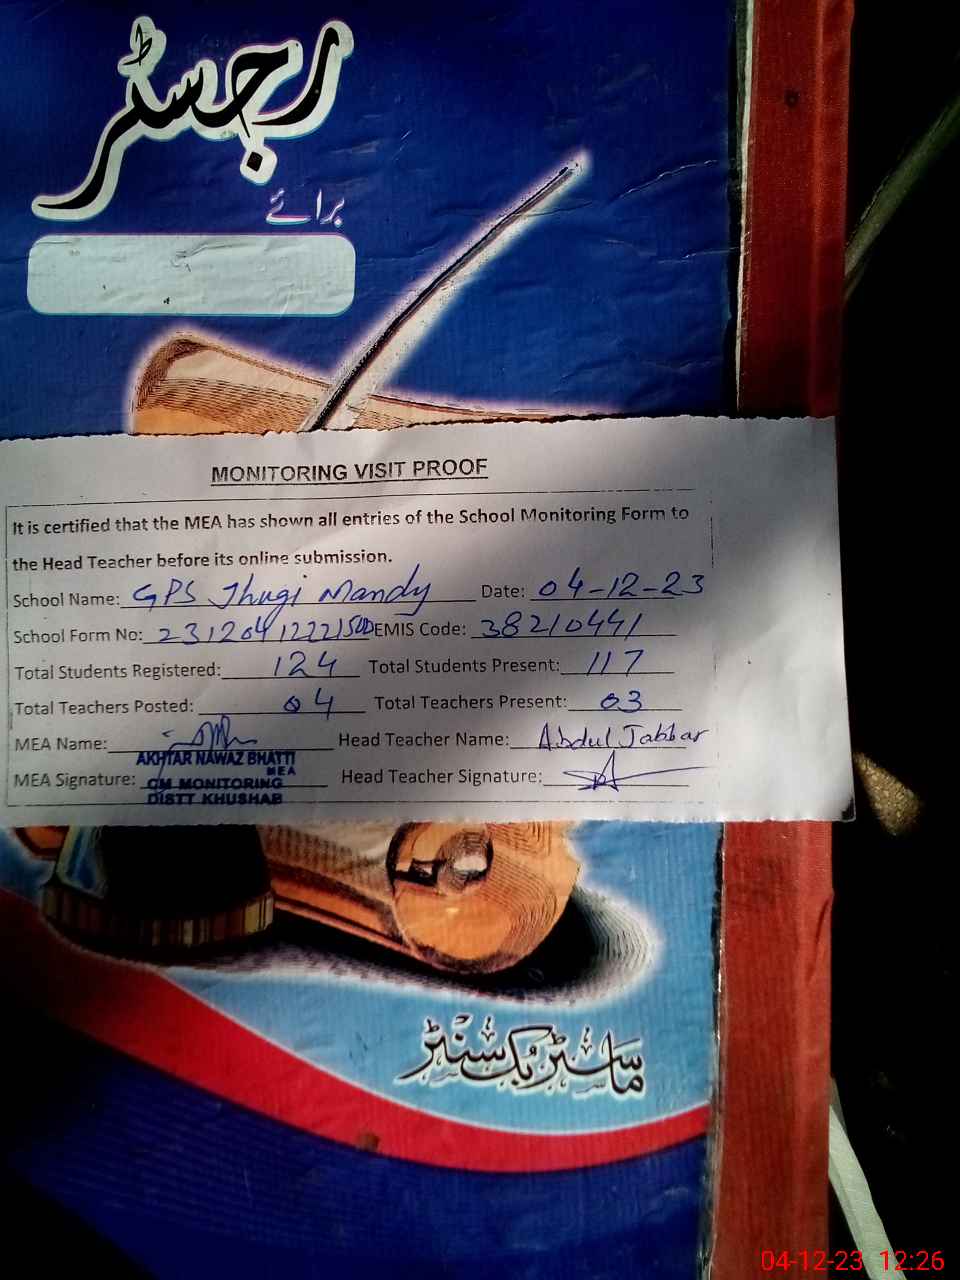 رجسٹر
برائے
MONITORING VISIT PROOF
It is certified that the MEA has shown all entries of the School Monitoring Form to
the Head Teacher before its online submission.
School Name: GPS Jhugi Mandy Date: 04-12-23
School Form No: EMIS Code: 38210441
Total Students Registered: 124 Total Students Present: 117
Total Teachers Posted: 04 Total Teachers Present: 03
MEA Name: Head Teacher Name: Abdul Jabbar
AKHTAR NAWAZ BHATTI
MEA
MEA Signature: CM MONITORING Head Teacher Signature:
DISTT KHUSHAB
ماسٹر بک سنٹر
04-12-23 12:26